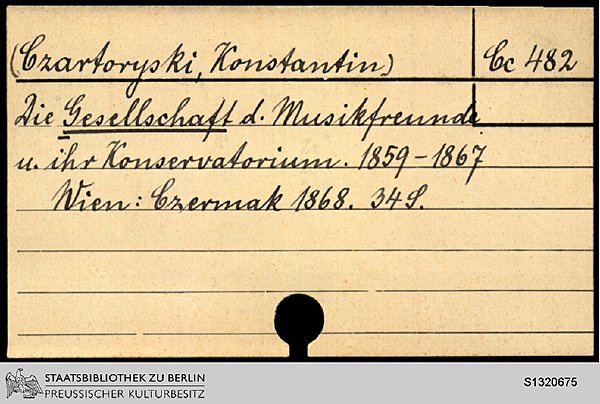 (Czartoryski, Konstantin) Cc 482
Die Gesellschaft d. Musikfreunde
u. ihr Konservatorium. 1859-1867
Wien: Czermak 1868. 34 S.
STAATSBIBLIOTHEK ZU BERLIN
PREUSSISCHER KULTURBESITZ
S1320675